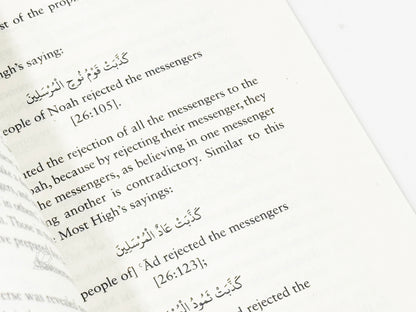 st of the prop
igh's saying:
كَذَّبَتْ قَوْمُ نُوحٍ الْمُرْسَلِينَ
eople of Noah rejected the messengers
[26:105].
ted the rejection of all the messengers to the
oah, because by rejecting their messenger, they
he messengers, as believing in one messenger
ng another is contradictory. Similar to this
Most High's sayings:
كَذَّبَتْ عَادٌ الْمُرْسَلِينَ
people of] ʿĀd rejected the messengers
[26:123];
كَذَّبَتْ ثَمُودُ الْمُرْسَلِينَ
d rejected the
erse was revealed